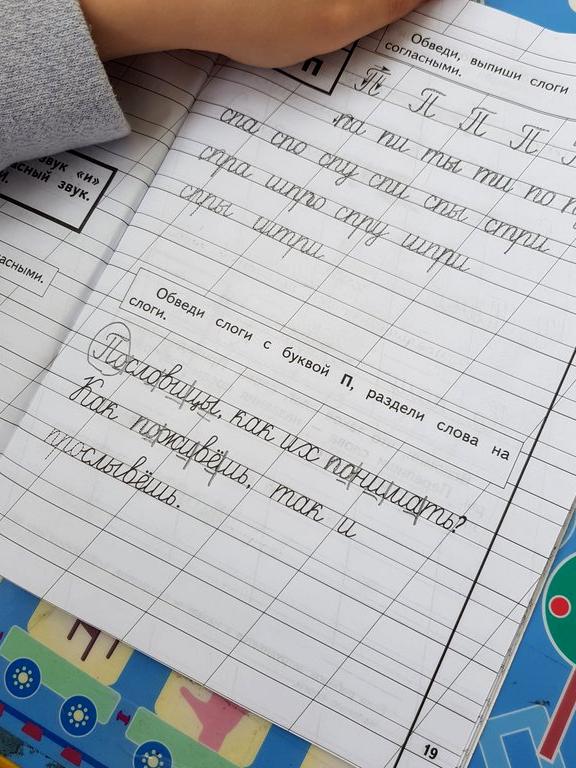 вук «и»
асный звук.
и.
асными.
П
Обведи, выпиши слоги
согласными.
П П П П
па пи ты ти по п
спа спо спу спи спы стри
спра шпро спру шпри
спры штри
Обведи слоги с буквой П, раздели слова на
слоги.
Пословицы, как их понимать?
Как поживёшь, так и
прослывёшь.
19